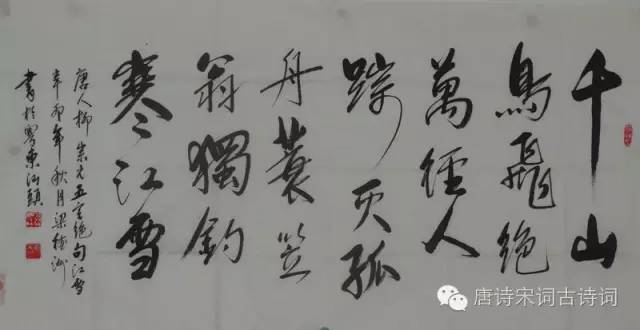 千山
鳥飛絕
萬徑人
踪灭孤
舟蓑笠
翁獨釣
寒江雪
唐人柳宗元五言絕句江雪
辛卯年秋月梁
書於粵東汕頭
唐诗宋词古诗词